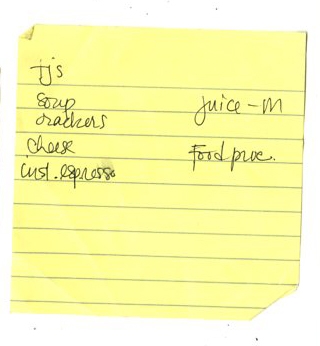 tjs
soup
crackers
cheese
inst. espresso
juice - m
Food proc.